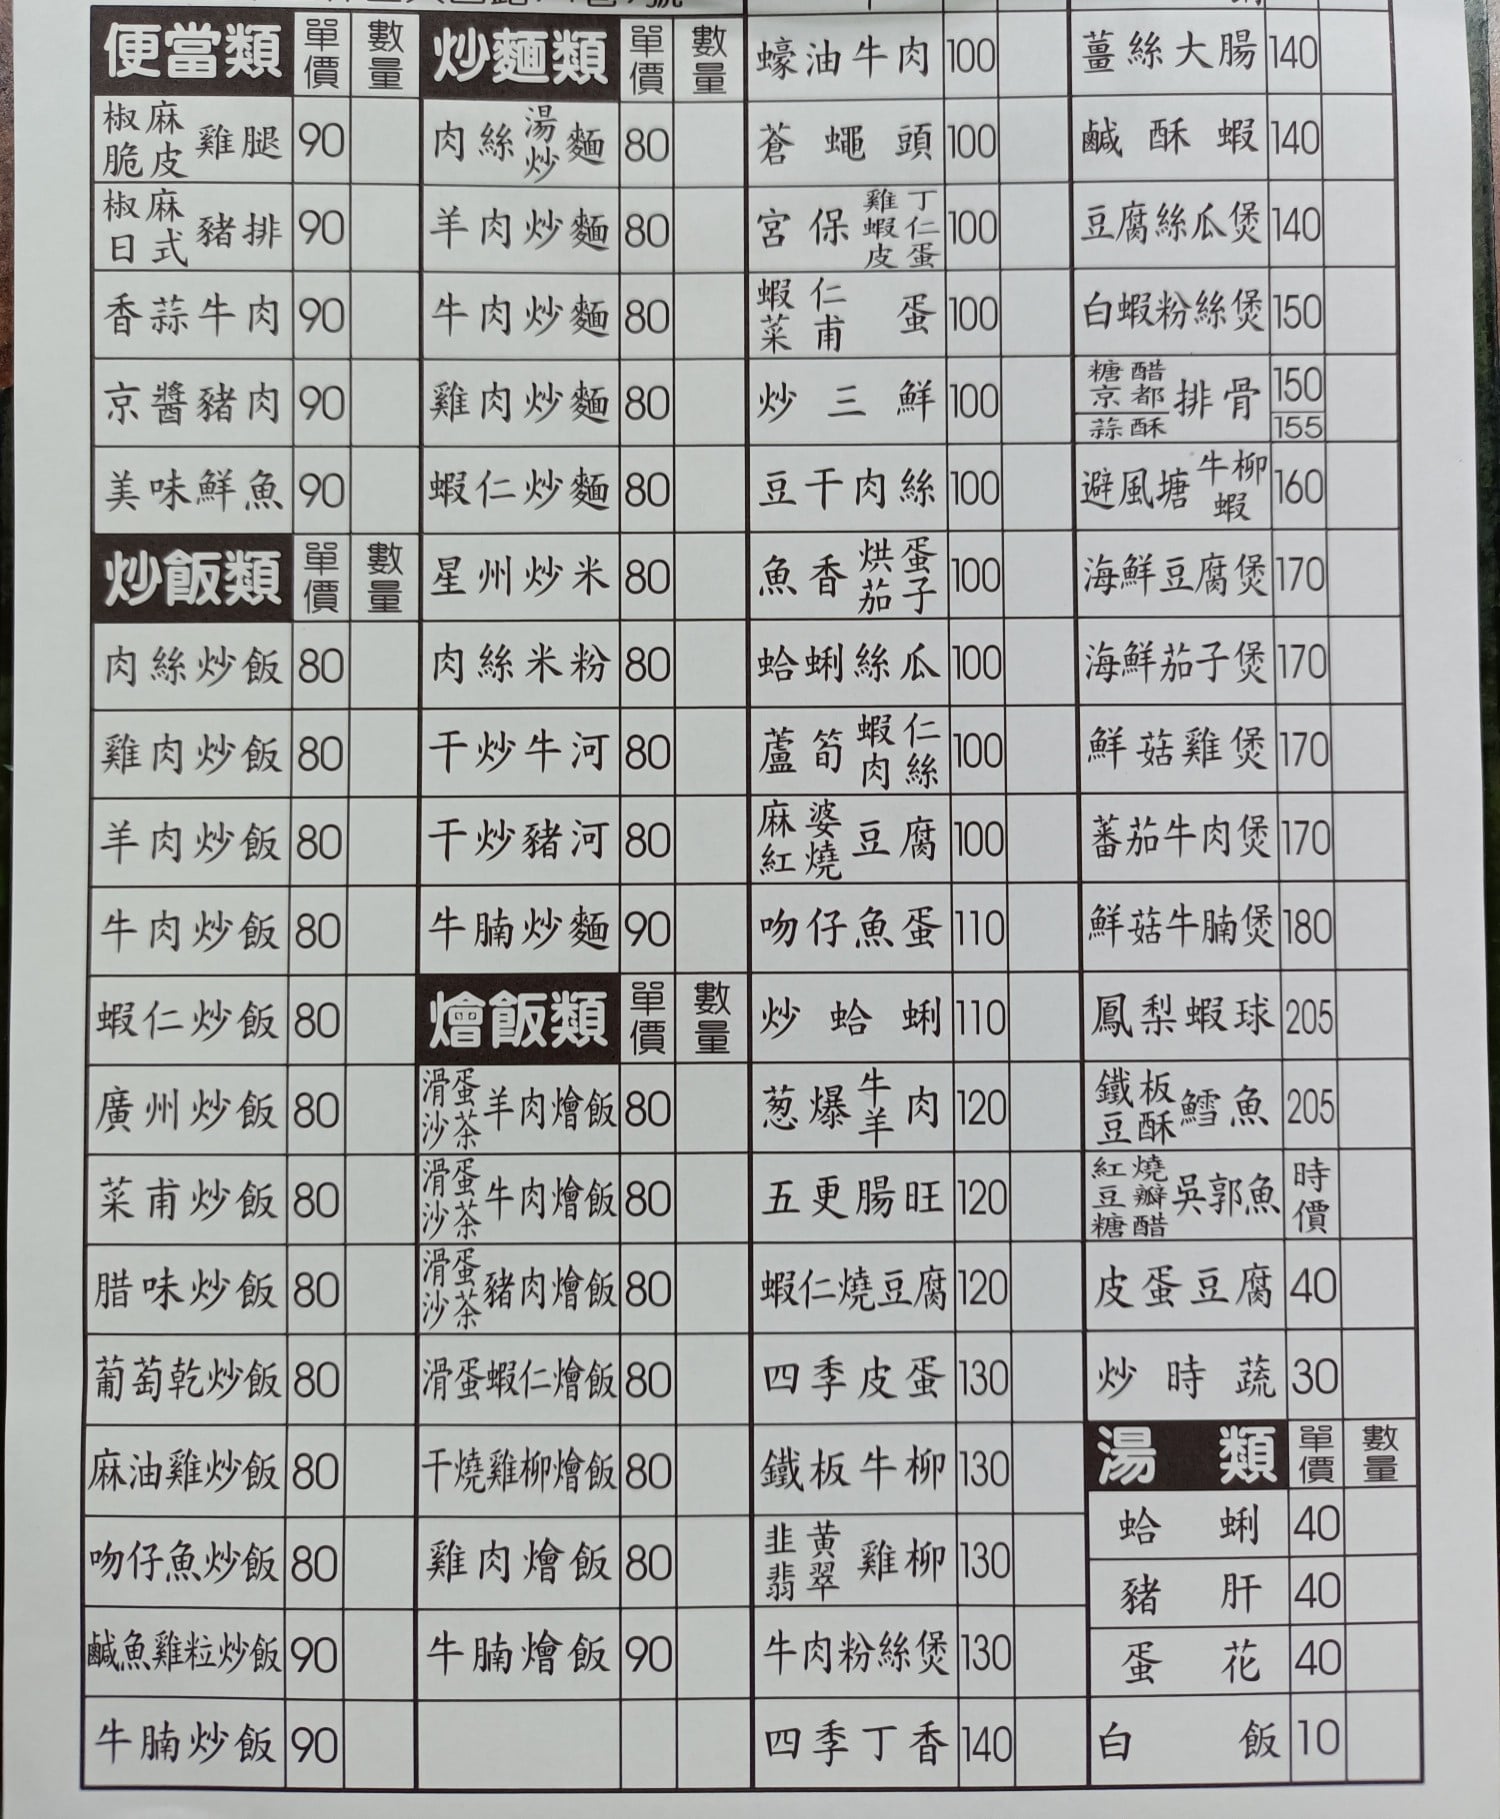 便當類 單價 數量
椒麻 脆皮 雞腿 90
椒麻 日式 豬排 90
香蒜牛肉 90
京醬豬肉 90
美味鮮魚 90
炒飯類 單價 數量
肉絲炒飯 80
雞肉炒飯 80
羊肉炒飯 80
牛肉炒飯 80
蝦仁炒飯 80
廣州炒飯 80
菜甫炒飯 80
腊味炒飯 80
葡萄乾炒飯 80
麻油雞炒飯 80
吻仔魚炒飯 80
鹹魚雞粒炒飯 90
牛腩炒飯 90
炒麵類 單價 數量
肉絲 湯 炒 麵 80
羊肉炒麵 80
牛肉炒麵 80
雞肉炒麵 80
蝦仁炒麵 80
星州炒米 80
肉絲米粉 80
干炒牛河 80
干炒豬河 80
牛腩炒麵 90
燴飯類 單價 數量
滑蛋 沙茶 羊肉燴飯 80
滑蛋 沙茶 牛肉燴飯 80
滑蛋 沙茶 豬肉燴飯 80
滑蛋蝦仁燴飯 80
干燒雞柳燴飯 80
雞肉燴飯 80
牛腩燴飯 90
蠔油牛肉 100
蒼蠅頭 100
宮保 雞丁 蝦仁 皮蛋 100
蝦仁 菜甫 蛋 100
炒三鮮 100
豆干肉絲 100
魚香 烘蛋 茄子 100
蛤蜊絲瓜 100
蘆筍 蝦仁 肉絲 100
麻婆 紅燒 豆腐 100
吻仔魚蛋 110
炒蛤蜊 110
葱爆 牛 羊 肉 120
五更腸旺 120
蝦仁燒豆腐 120
四季皮蛋 130
鐵板牛柳 130
韭黃 翡翠 雞柳 130
牛肉粉絲煲 130
四季丁香 140
薑絲大腸 140
鹹酥蝦 140
豆腐絲瓜煲 140
白蝦粉絲煲 150
糖醋 京都 排骨 150
蒜酥 155
避風塘 牛柳 蝦 160
海鮮豆腐煲 170
海鮮茄子煲 170
鮮菇雞煲 170
蕃茄牛肉煲 170
鮮菇牛腩煲 180
鳳梨蝦球 205
鐵板 豆酥 鱈魚 205
紅燒 豆瓣 糖醋 吳郭魚 時價
皮蛋豆腐 40
炒時蔬 30
湯類 單價 數量
蛤蜊 40
豬肝 40
蛋花 40
白飯 10